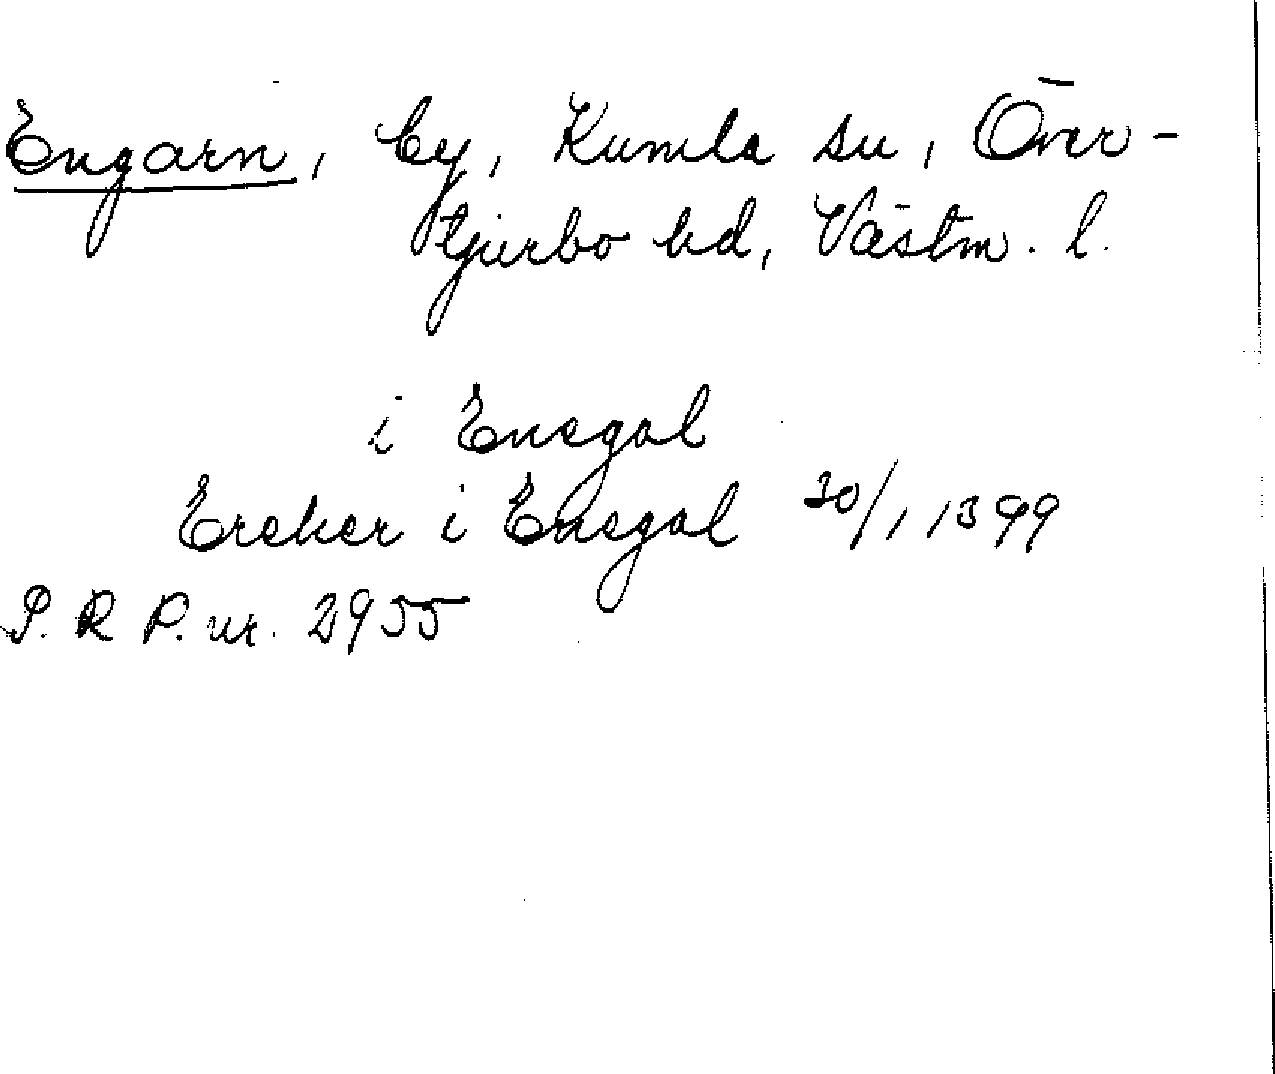 Engarn, by, Kumla sn, Över-
tjurbo hd, Västm. l.
i Ensgal
Ereker i Ensgal 30/1 1399
P. R P. nr. 2955